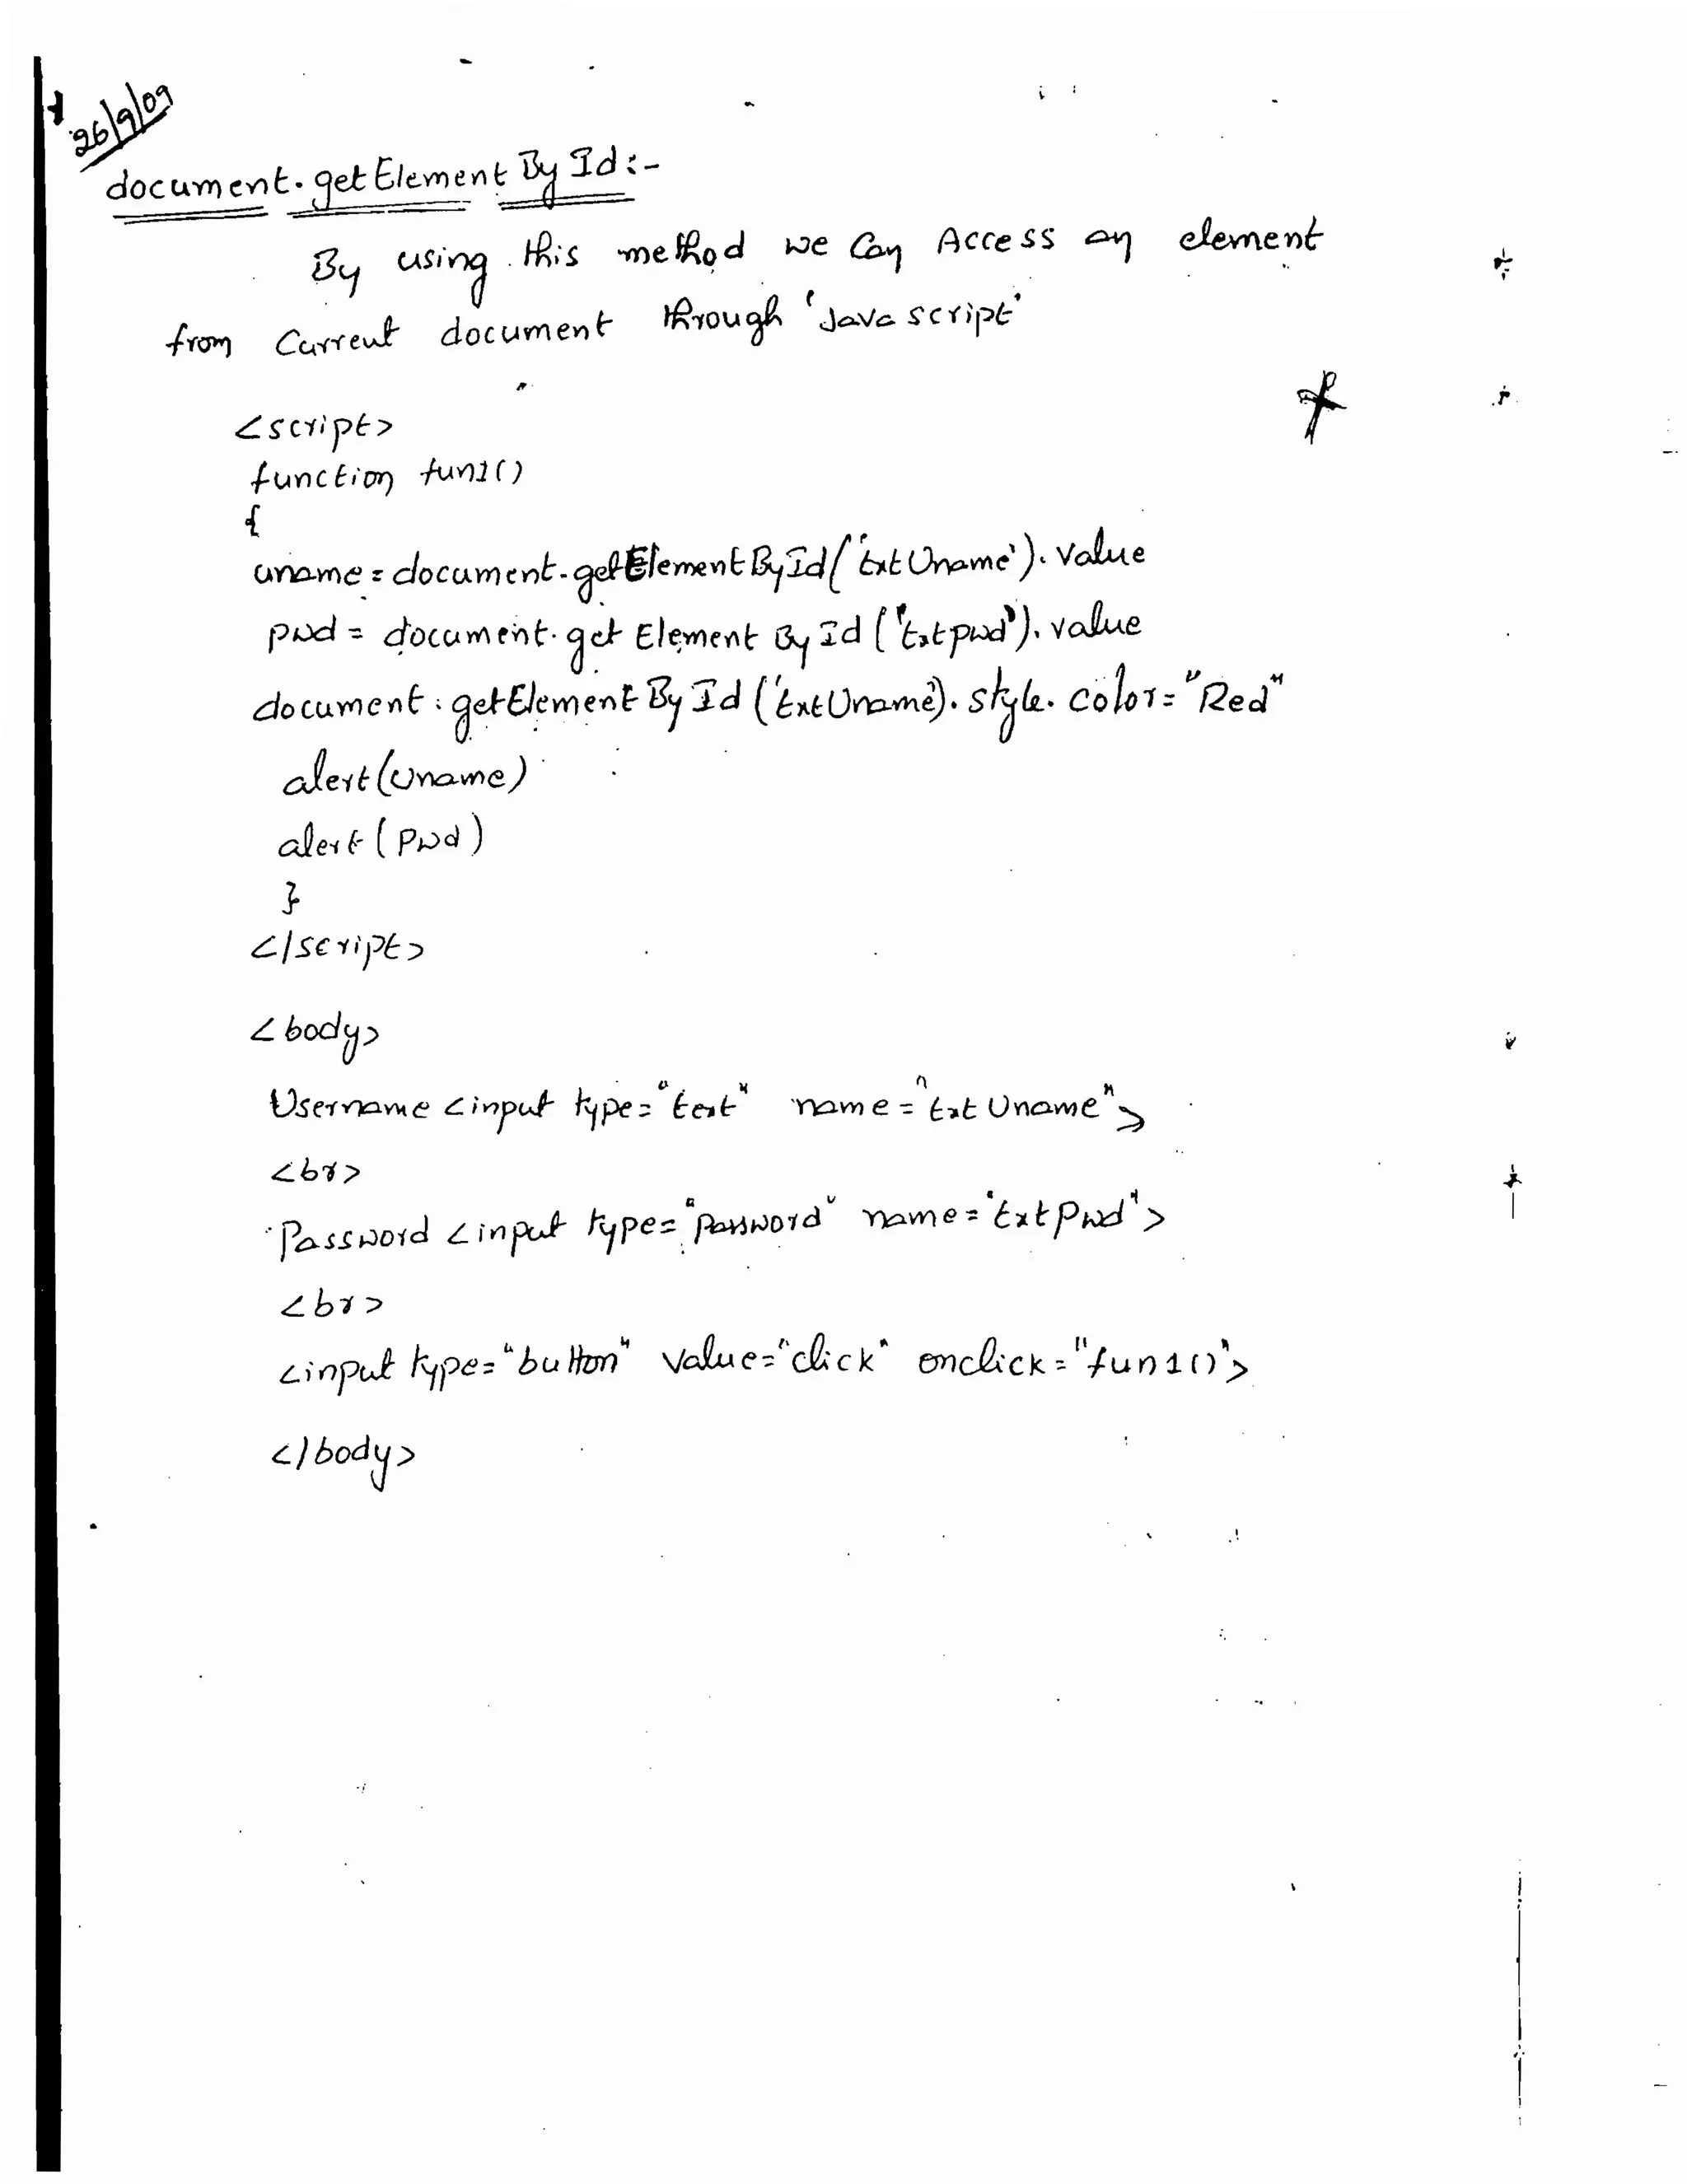 26/9/09
document.getElementById:-
By using this method we can Access an element
from Current document through 'Javascript'
<script>
function fun1()
{
uname = document.getElementById('txtUname').value
pwd = document.getElementById('txtpwd').value
document.getElementById('txtUname').style.color="Red"
alert(uname)
alert(pwd)
}
</script>
<body>
Username <input type="text" name="txtUname">
<br>
Password <input type="password" name="txtPwd">
<br>
<input type="button" value="click" onclick="fun1()">
</body>